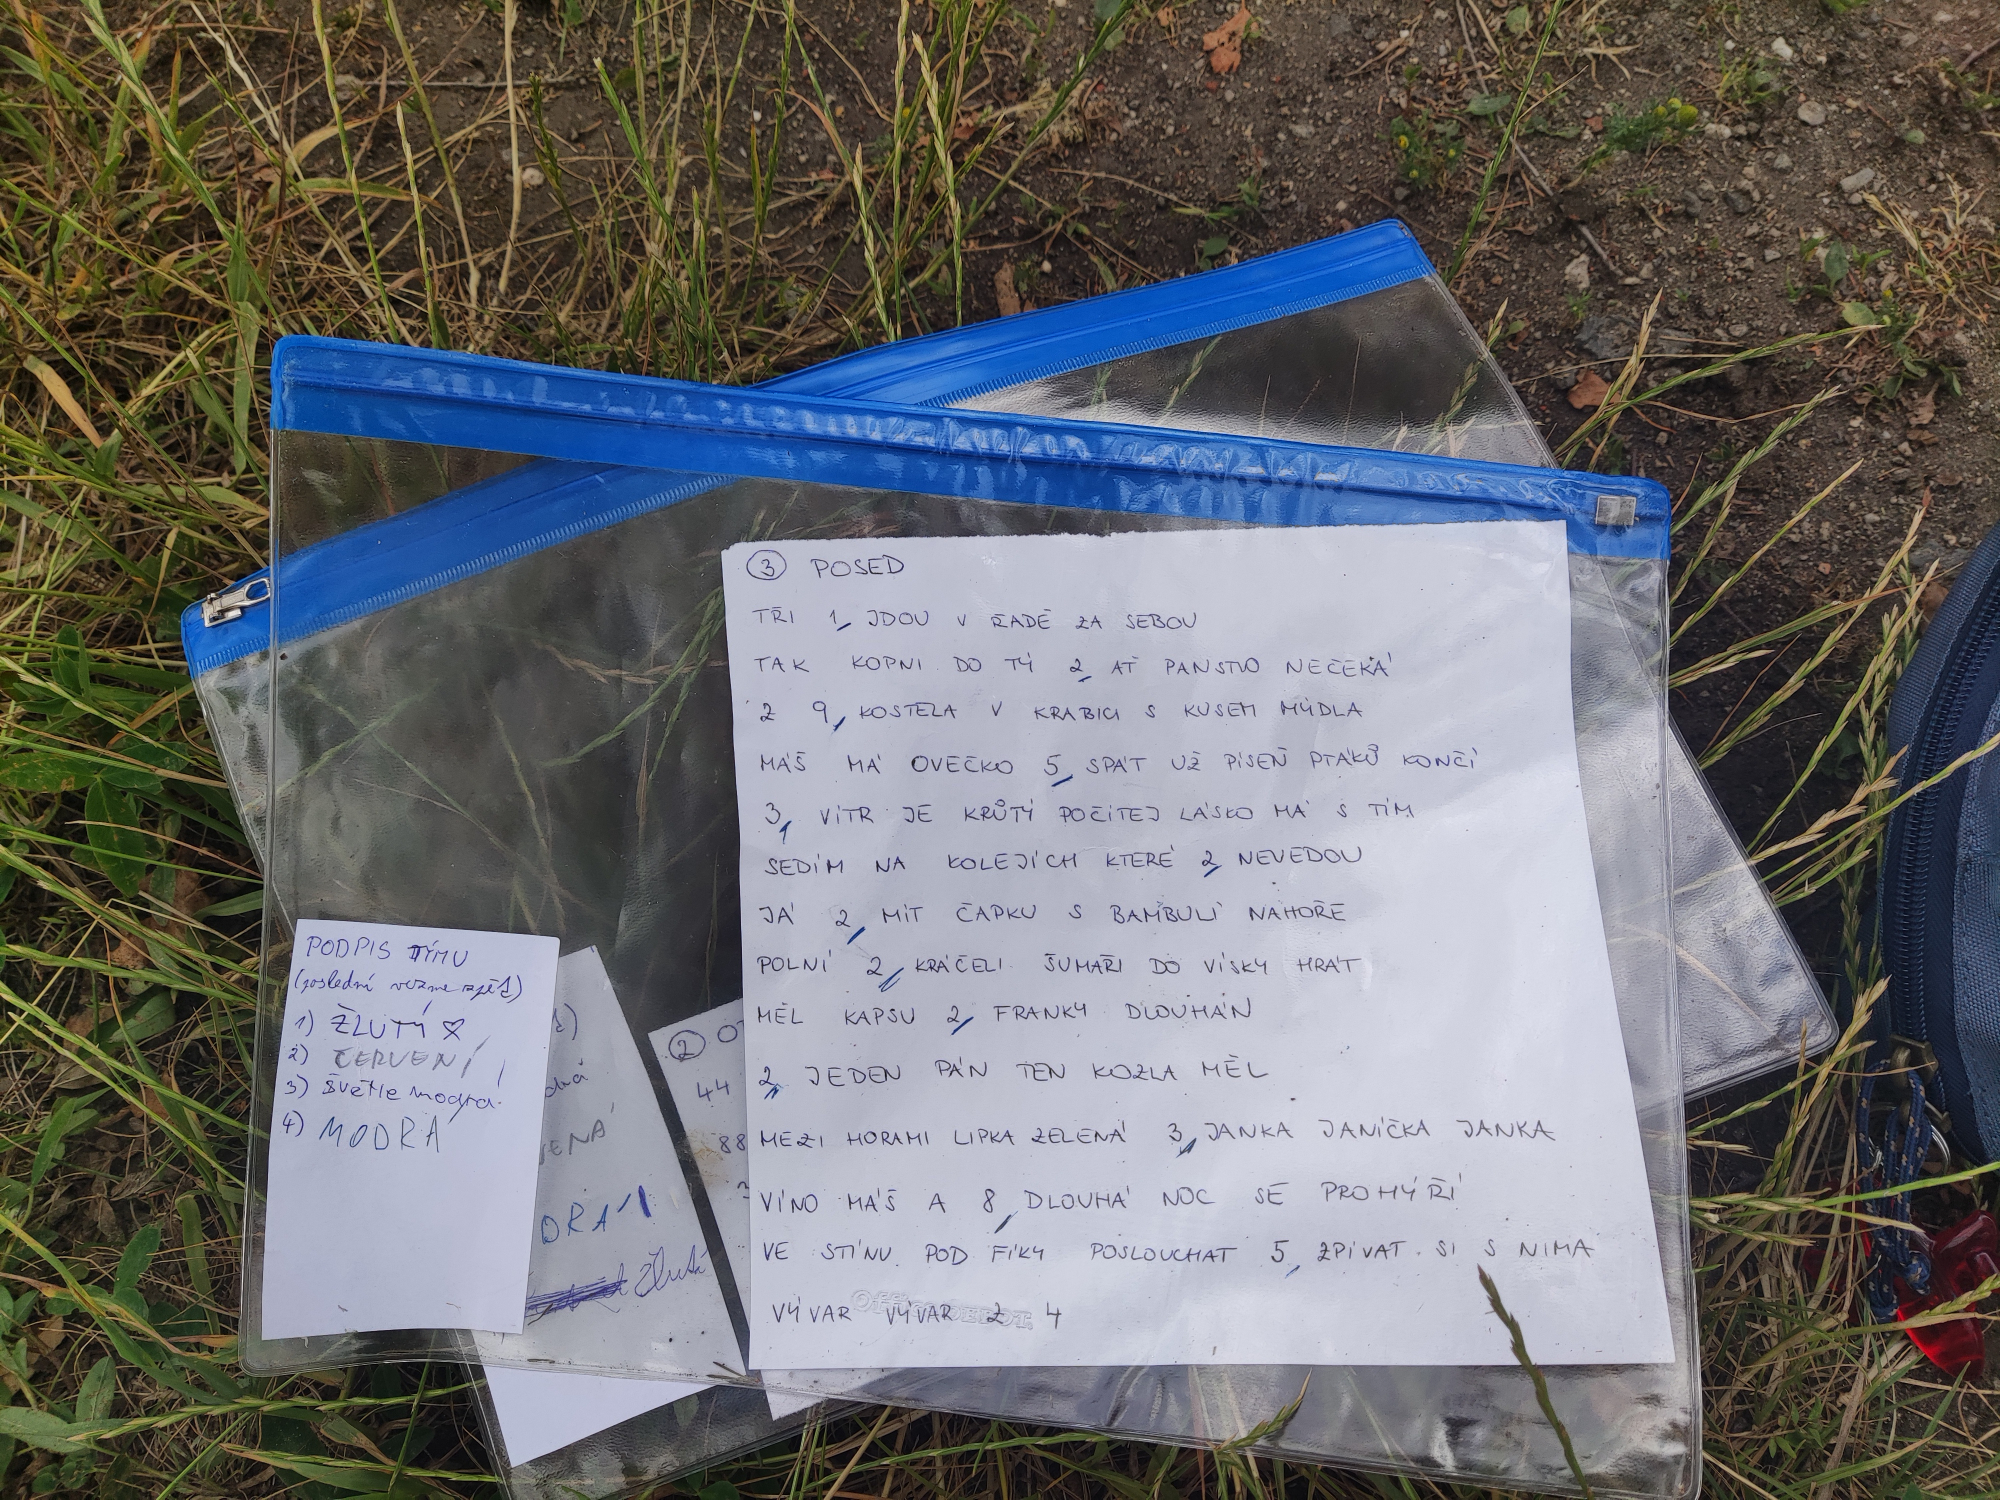 3 POSED
TŘI 1, JDOU V ŘADĚ ZA SEBOU
TAK KOPNI DO TÝ 2, AŤ PANSTVO NEČEKÁ
Z 9, KOSTELA V KRABICI S KUSEM MÝDLA
MÁŠ MÁ OVEČKO 5, SPÁT UŽ PÍSEŇ PTÁKŮ KONČÍ
3, VÍTR JE KRŮTÝ POČÍTEJ LÁSKO MÁ S TÍM
SEDÍM NA KOLEJÍCH KTERÉ 2, NEVEDOU
JÁ 2, MÍT ČAPKU S BAMBULÍ NAHOŘE
POLNÍ 2, KRÁČELI ŠUMAŘI DO VÍSKY HRÁT
MĚL KAPSU 2, FRANKY DLOUHÁN
2, JEDEN PÁN TEN KOZLA MĚL
MEZI HORAMI LIPKA ZELENÁ 3, JANKA JANÍČKA JANKA
VÍNO MÁŠ A 8, DLOUHÁ NOC SE PROMÝŘÍ
VE STÍNU POD FÍKY POSLOUCHAT 5, ZPÍVAT SI S NIMA
VÝVAR VÝVAR Z 4
Office DEPOT.
PODPIS TÝMU
(poslední vezme zpět)
1) ŽLUTÝ
2) ČERVENÍ
3) Světle modrá!
4) MODRÁ
2 OT
44
88
ENÁ
DRÁ
Žlutá